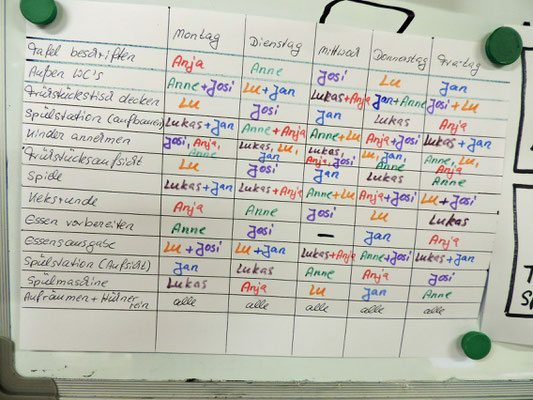 Montag Dienstag Mittwoch Donnerstag Freitag
Tafel beschriften Anja Anne Josi Lu Jan
Außen WC's Anne+Josi Lu+Jan Lukas+Anja Jan+Anne Josi+Lu
Frühstückstisch decken Lu Josi Jan Lukas Anja
Spülstation (aufbauen) Lukas+Jan Anne+Anja Anne+Lu Anja+Josi Lukas+Jan
Kinder annehmen Josi, Anja, Anne Lukas, Lu, Jan Lukas, Anja, Josi Lu, Jan, Anne Anne, Lu, Anja
Frühstücksaufsicht Lu Josi Jan Lukas Anne
Spiele Lukas+Jan Lukas+Anja Anne+Lu Anja+Josi Lu+Josi
Keksrunde Anja Anne Josi Lu Lukas
Essen vorbereiten Anne Josi – Jan Anja
Essensausgabe Lu+Josi Lu+Jan Lukas+Anja Anne+Josi Lukas+Jan
Spülstation (Aufsicht) Jan Lukas Anne Anja Josi
Spülmaschine Lukas Anja Lu Jan Anne
Aufräumen + Hühner rein alle alle alle alle alle